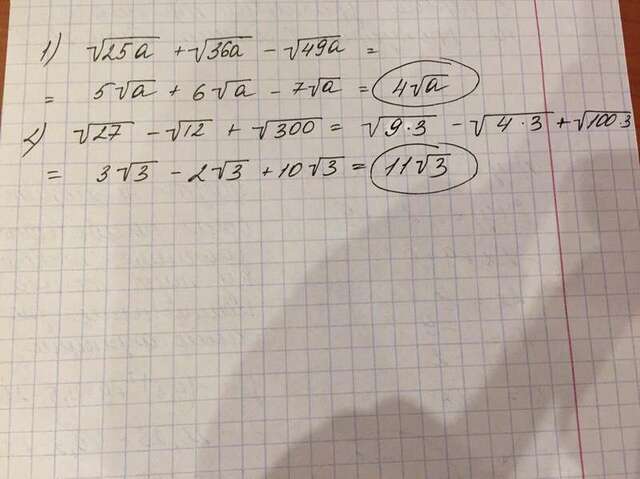 1) √25a + √36a - √49a =
= 5√a + 6√a - 7√a = 4√a
2) √27 - √12 + √300 = √9·3 - √4·3 + √100·3
= 3√3 - 2√3 + 10√3 = 11√3